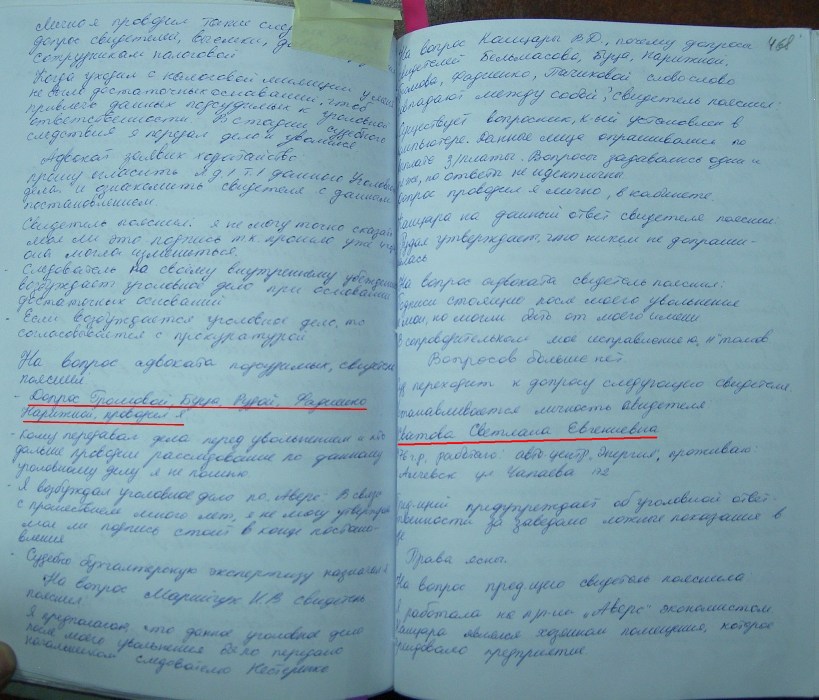 Мною проводил также след
допрос свидетелей, выемки, до
сотрудникам налоговой
Когда уходил с налоговой милиции у меня
не было достаточных оснований, чтоб
привлечь данных подсудимых к уголовной
ответственности. В стадии судебного
следствия я передал дело и уволился
Адвокат заявил ходатайство
прошу огласить л.д.1 т.1 данного уголовн
дела и ознакомить свидетеля с данным
постановлением.
Свидетель пояснил: я не могу точно сказать
моя ли это подпись т.к. прошло уже
она могла измениться.
- Следователь по своему внутреннему убеждению
возбуждает уголовное дело при основании
достаточных оснований
- Если возбуждается уголовное дело, то
согласовывается с прокуратурой
На вопрос адвоката подсудимых, свидетель
пояснил
- Допрос Громовой, Буца, Рудой, Фадиенко
Нарижной, проводил я
- Кому передавал дела перед увольнением и кто
дальше проводил расследование по данному
уголовному делу я не помню.
- Я возбуждал уголовное дело по "Аверс". В связи
с прошествием много лет, я не могу утверждать
моя ли подпись стоит в конце постано-
вления
- Судебно бухгалтерскую экспертизу назначал я
На вопрос Марийчук И.В свидетель
пояснил
Я предполагаю, что данное уголовное дело
после моего увольнения было передано
начальником следователю Нестеренко
468
На вопрос Кашцары В.D., почему допросы
свидетелей Бельмасова, Буца, Нарижной,
Фадиенко, слово слово
совпадают между собой, свидетель пояснил:
Существует вопросник, к-ый установлен в
компьютере. Данные лица опрашивались по
выплате з/платы. Вопросы задавались одни и
те же, но ответы не идентичны.
Допрос проводил я лично, в кабинете.
Кашцара на данный ответ свидетеля пояснил:
Рудая утверждает, что никем не допраши-
валась
На вопрос адвоката свидетель пояснил:
Подписи стоящие после моего увольнения
не мои, но могли быть от моего имени
В сопроводительном мое исправление о, н томов
Вопросов больше нет
Суд переходит к допросу следующего свидетеля.
Устанавливается личность свидетеля
Светлана Евгениевна
г.р. работаю: авто центр, Энергия, проживаю:
Алчевск ул Чапаева
Пред-щий предупреждает об уголовной ответ-
ственности за заведомо ложные показания в
Права ясны.
На вопрос пред-щего свидетель пояснила
Я работала на пр-тие "Аверс" экономистом
Кашцара являлся хозяином помещения, которое
арендовало предприятие